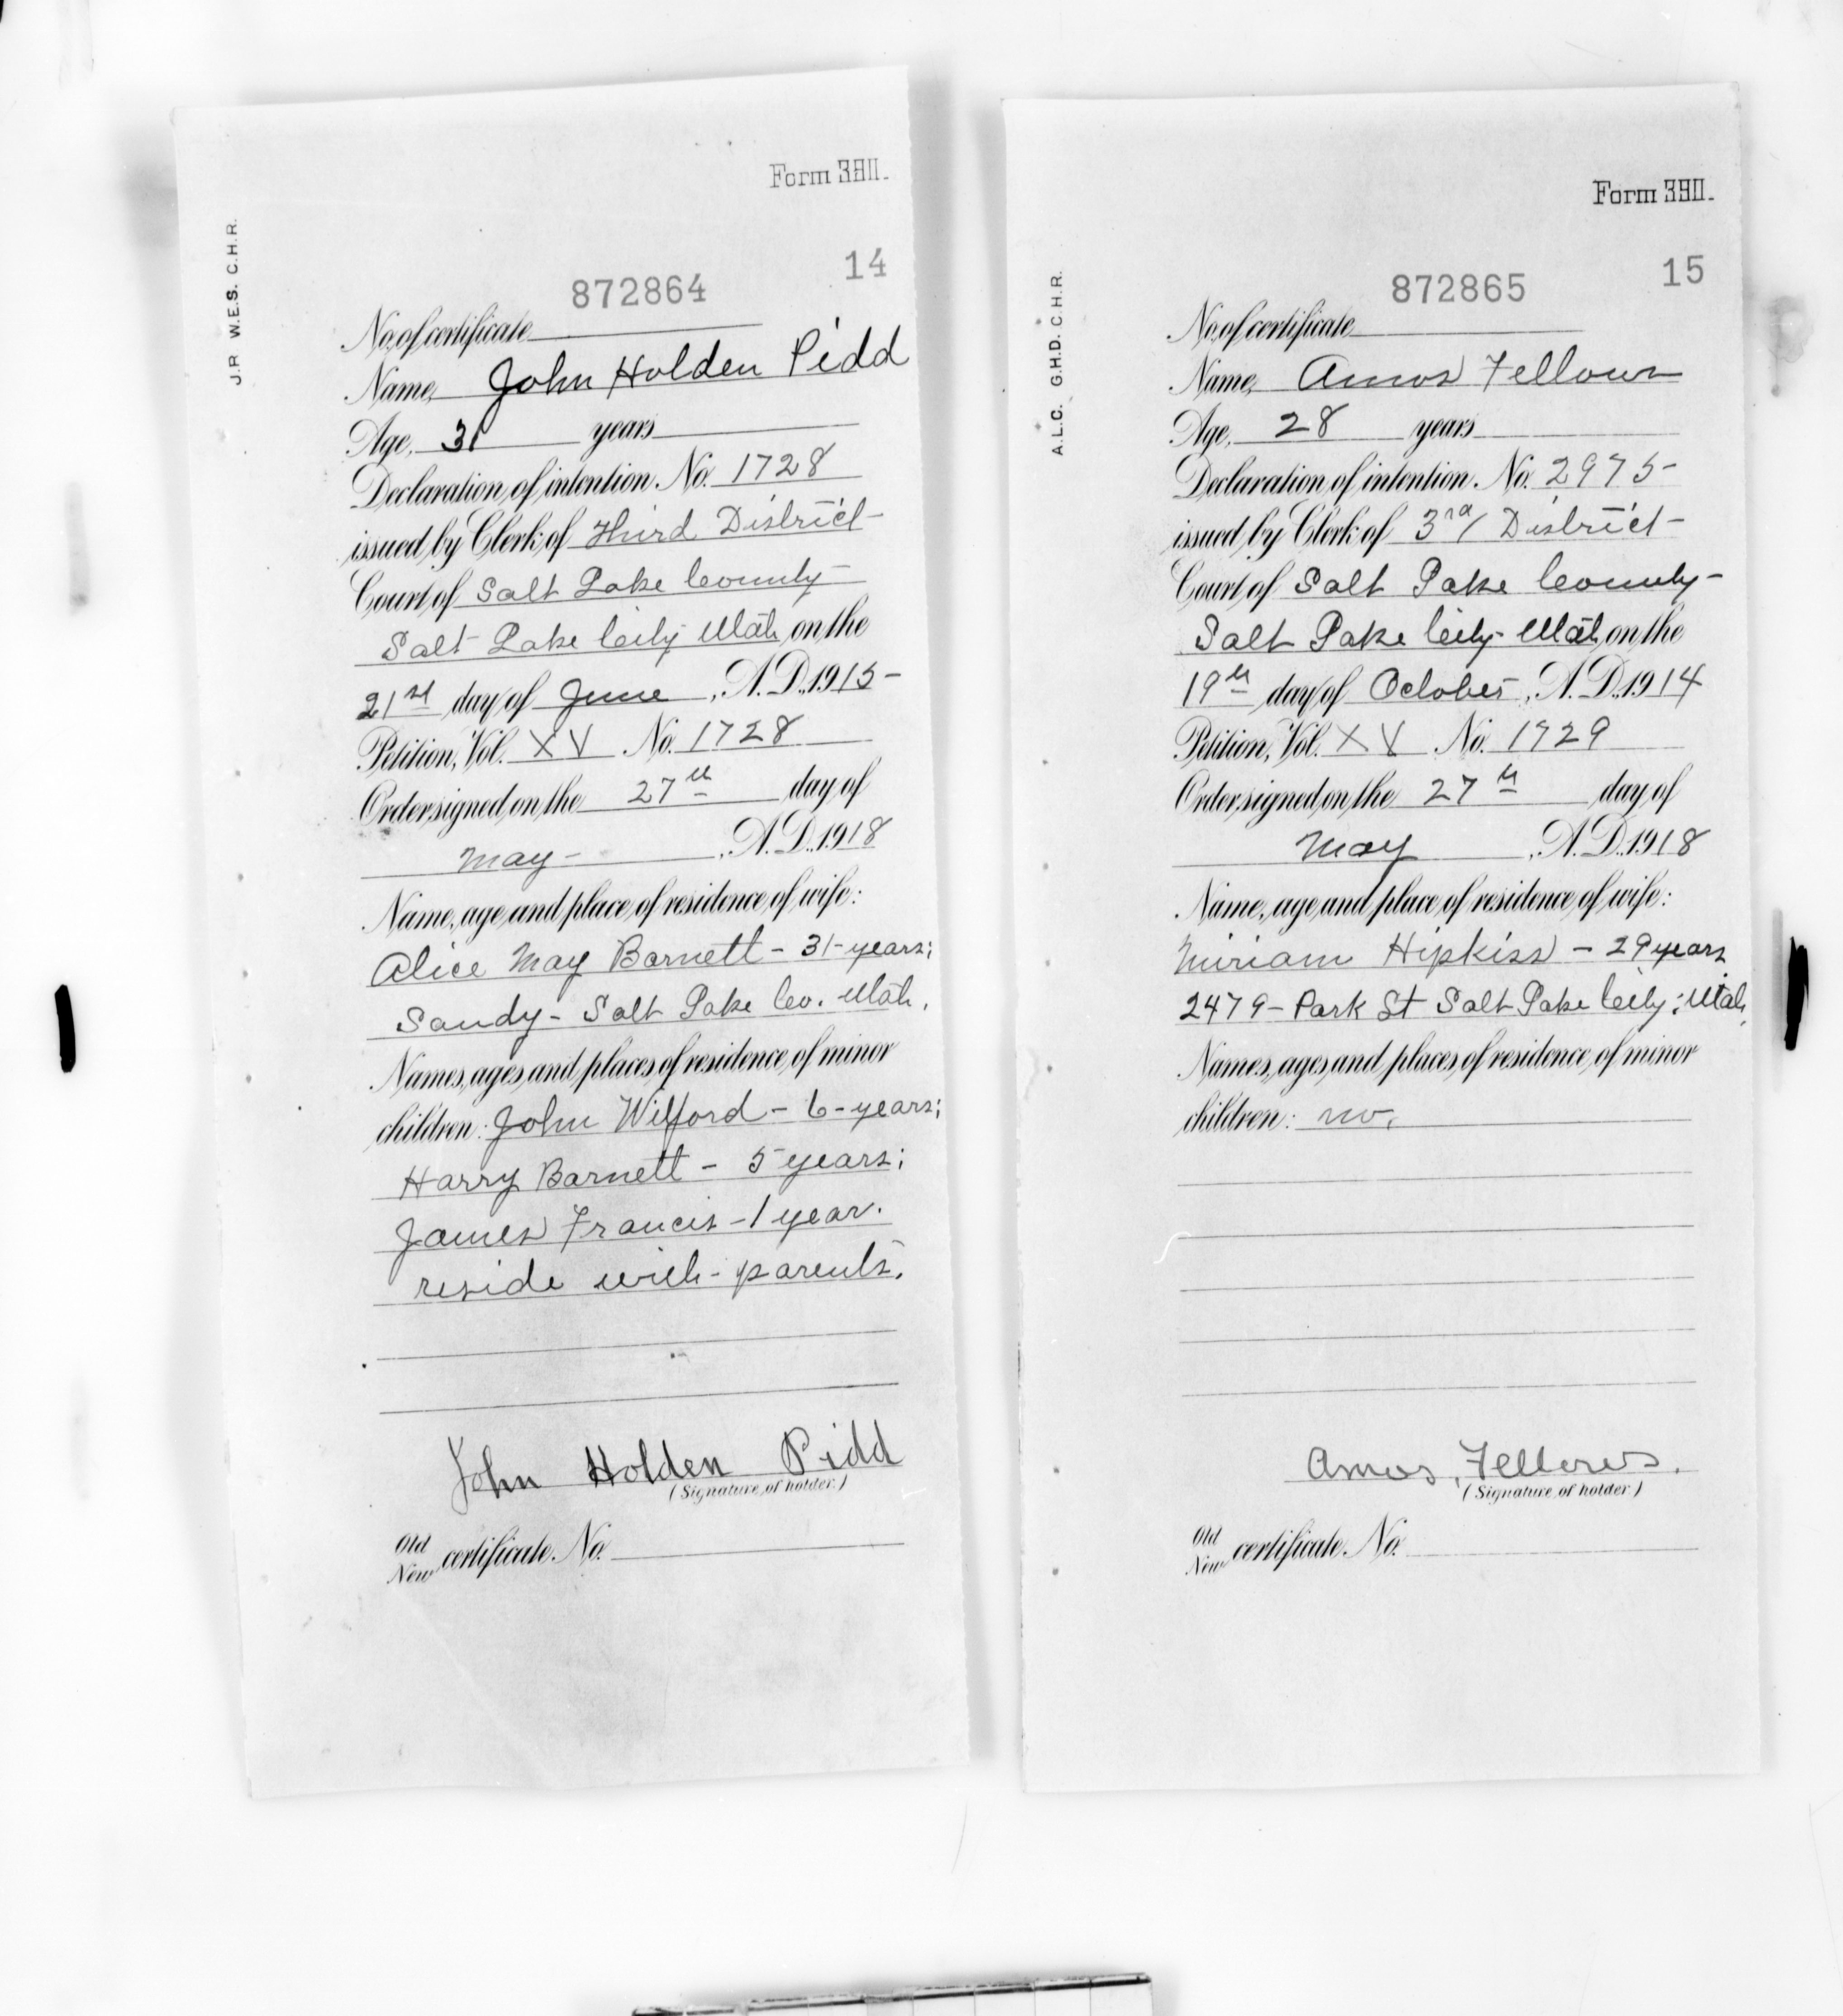 Form 380.
14
J.P. W.E.S. C.H.R.
872864
No. of certificate
Name, John Holden Pidd
Age, 31 years
Declaration of intention No. 1728
issued by Clerk of Third District
Court of Salt Lake County
Salt Lake City Utah, on the
21st day of June, A.D. 1915
Petition, Vol. XV No. 1728
Order signed on the 27th day of
May, A.D. 1918
Name, age and place of residence of wife:
Alice May Barnett - 31-years;
Sandy - Salt Lake Co. Utah.
Names, ages and places of residence of minor
children: John Wilford - 6-years;
Harry Barnett - 5 years;
James Francis - 1 year.
reside with parents.
John Holden Pidd
(Signature of holder.)
Old
New certificate No.
Form 380.
15
A.L.C. G.H.D. C.H.R.
872865
No. of certificate
Name, Amos Fellows
Age, 28 years
Declaration of intention No. 2975
issued by Clerk of 3rd District
Court of Salt Lake County
Salt Lake City Utah, on the
19th day of October, A.D. 1914
Petition, Vol. XV No. 1729
Order signed on the 27th day of
May, A.D. 1918
Name, age and place of residence of wife:
Miriam Hipkiss - 29 years
2479 - Park St Salt Lake City; Utah.
Names, ages and places of residence of minor
children: no.
Amos Fellows.
(Signature of holder.)
Old
New certificate No.